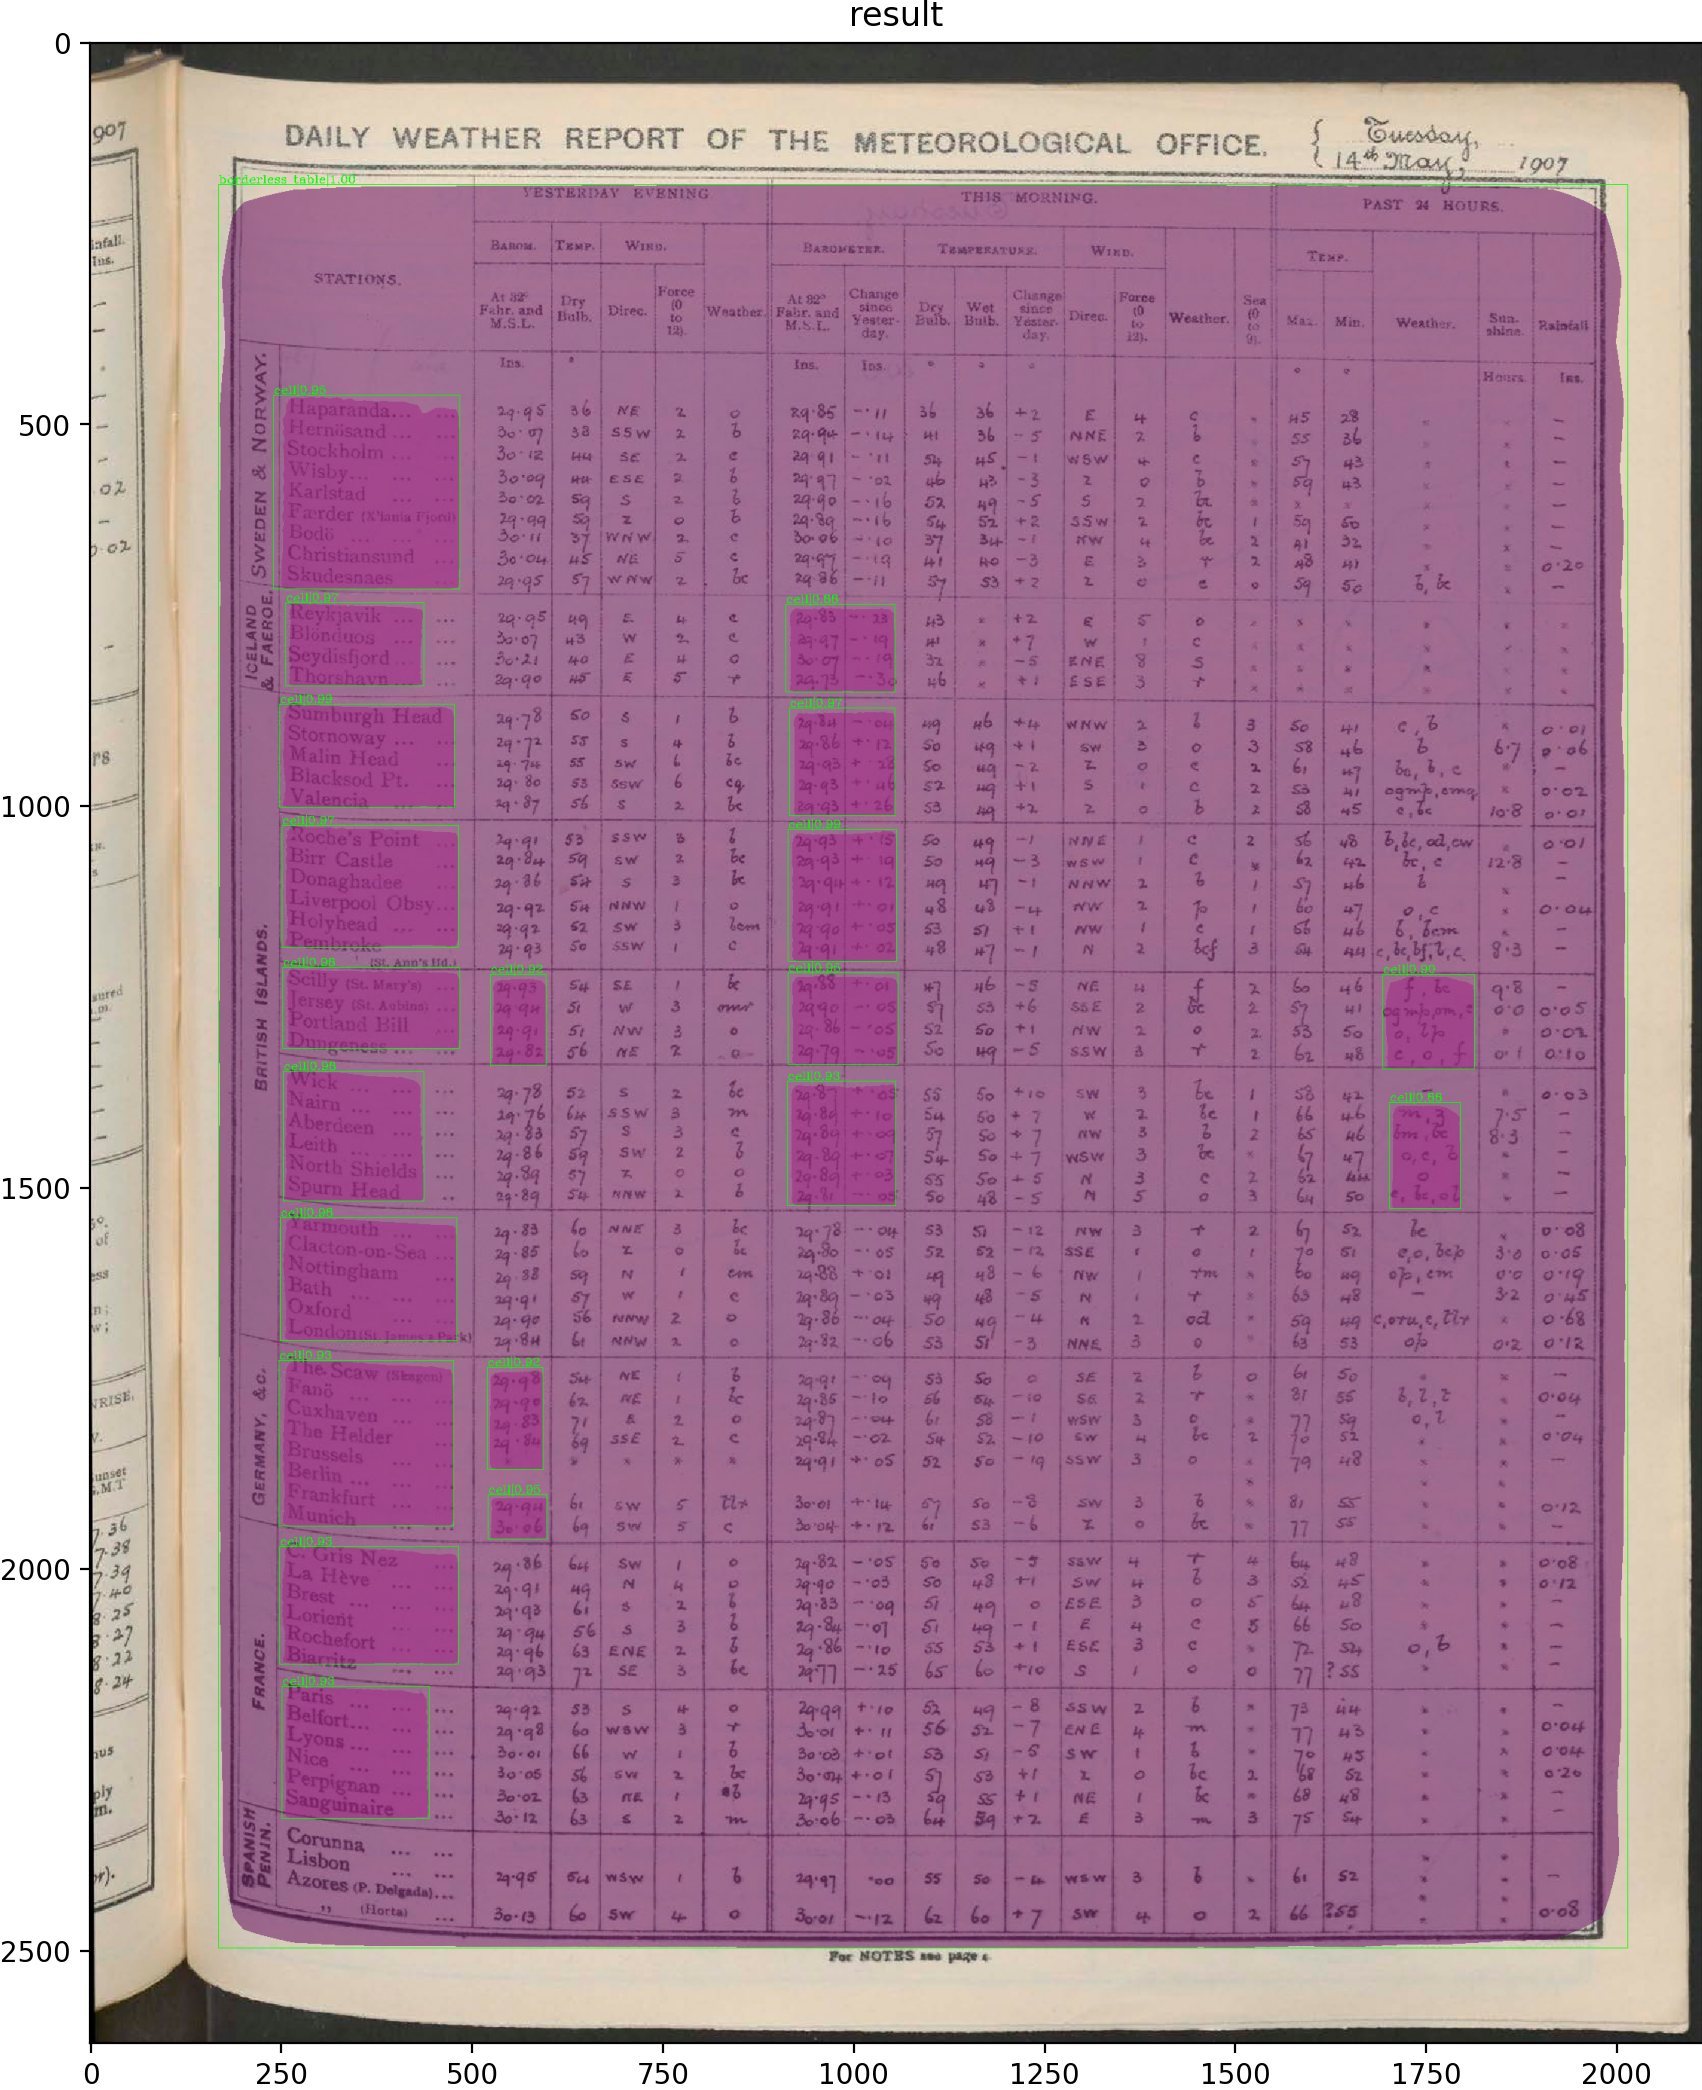 result
DAILY WEATHER REPORT OF THE METEOROLOGICAL OFFICE.
Tuesday,
14th May, 1907
borderless table|1.00
YESTERDAY EVENING THIS MORNING. PAST 24 HOURS.
STATIONS. BAROM. TEMP. WIND. Weather. BAROMETER. TEMPERATURE. WIND. Weather. Sea (0 to 9). TEMP. Weather. Sunshine. Rainfall
At 32° Fahr. and M.S.L. Dry Bulb. Direc. Force (0 to 12). At 32° Fahr. and M.S.L. Change since Yesterday. Dry Bulb. Wet Bulb. Change since Yesterday. Direc. Force (0 to 12). Max. Min.
Ins. ° Ins. Ins. ° ° ° ° ° Hours Ins.
SWEDEN & NORWAY.
Haparanda... 29.95 36 NE 2 o 29.85 -.11 36 36 +2 E 4 c 45 28 –
Hernösand ... 30.07 38 SSW 2 b 29.94 -.14 41 36 -5 NNE 2 b 55 36 –
Stockholm ... 30.12 44 SE 2 c 29.91 -.11 54 45 -1 WSW 4 c 57 43 –
Wisby... 30.09 44 ESE 2 b 29.97 -.02 46 43 -3 Z 0 b 59 43 –
Karlstad ... 30.02 59 S 2 b 29.90 -.16 52 49 -5 S 2 bc
Færder (X'iania Fjord) 29.99 59 Z 0 b 29.89 -.16 54 52 +2 SSW 2 bc 1 59 50 –
Bodö ... 30.11 37 WNW 2 c 30.06 -.10 37 34 -1 NW 4 bc 2 41 32 –
Christiansund ... 30.04 45 NE 5 c 29.97 -.19 41 40 -3 E 3 r 2 48 41 0.20
Skudesnaes ... 29.95 57 WNW 2 bc 29.86 -.11 57 53 +2 Z 0 c 0 59 50 b, bc –
ICELAND & FAEROE.
Reykjavik ... 29.95 49 E 4 c 29.83 -.23 43 +2 E 5 o
Blönduos ... 30.07 43 W 2 c 29.97 -.19 41 +7 W 1 c
Seydisfjord ... 30.21 40 E 4 o 30.07 -.19 32 -5 ENE 8 s
Thorshavn ... 29.90 45 E 5 r 29.73 -.30 46 +1 ESE 3 r
BRITISH ISLANDS.
Sumburgh Head 29.78 50 S 1 b 29.84 -.04 49 46 +4 WNW 2 b 3 50 41 c, b 0.01
Stornoway ... 29.72 55 S 4 b 29.86 +.12 50 49 +1 SW 3 o 3 58 46 b 6.7 0.06
Malin Head ... 29.74 55 SW 6 bc 29.93 +.23 50 49 -2 Z 0 c 2 61 47 bc, b, c –
Blacksod Pt. ... 29.80 53 SSW 6 cq. 29.93 +.46 52 49 +1 S 1 c 2 53 41 0.02
Valencia ... 29.87 56 S 2 bc 29.93 +.26 53 49 +2 Z 0 b 2 58 45 c, bc 10.8 0.01
Roche's Point ... 29.91 53 SSW 3 b 29.93 +.15 50 49 -1 NNE 1 c 2 56 48 b, bc, od, cw 0.01
Birr Castle ... 29.84 59 SW 2 bc 29.93 +.19 50 49 -3 WSW 1 c 62 42 bc, c 12.8 –
Donaghadee ... 29.86 54 S 3 bc 29.94 +.12 49 47 -1 NNW 2 b 1 57 46 b –
Liverpool Obsy... 29.92 54 NNW 1 o 29.91 +.01 48 48 -4 NW 2 p 1 60 47 o, c 0.04
Holyhead ... 29.92 52 SW 3 bcm 29.90 +.05 53 51 +1 NW 1 c 1 56 46 b, bcm –
Pembroke (St. Ann's Hd.) 29.93 50 SSW 1 c 29.91 +.02 48 47 -1 N 2 bcf 3 54 44 c, bc, bf, b, c. 8.3 –
Scilly (St. Mary's) ... 29.93 54 SE 1 bc 29.88 +.01 47 46 -5 NE 4 f 2 60 46 f, bc 9.8 –
Jersey (St. Aubins) ... 29.94 51 W 3 omr 29.90 -.05 57 53 +6 SSE 2 bc 2 57 41 0.0 0.05
Portland Bill ... 29.91 51 NW 3 o 29.86 -.05 52 50 +1 NW 2 o 2 53 50 0.02
Dungeness ... 29.82 56 NE 2 o 29.79 -.05 50 49 -5 SSW 3 r 2 62 48 c, o, f 0.1 0.10
Wick ... 29.78 52 S 2 bc 29.87 +.05 55 50 +10 SW 3 bc 1 58 42 – 0.03
Nairn ... 29.76 64 SSW 3 m 29.86 +.10 54 50 +7 W 2 bc 1 66 46 m, z 7.5 –
Aberdeen ... 29.83 57 S 3 c 29.89 +.09 57 50 +7 NW 3 b 2 65 46 bm, bc 8.3 –
Leith ... 29.86 59 SW 2 b 29.89 +.07 54 50 +7 WSW 3 bc 67 47 o, c, b –
North Shields 29.89 57 Z 0 o 29.89 +.03 55 50 +5 N 3 c 2 62 44 o –
Spurn Head ... 29.89 54 NNW 2 b 29.81 -.05 50 48 -5 N 5 o 3 64 50 –
Yarmouth ... 29.83 60 NNE 3 bc 29.78 -.04 53 51 -12 NW 3 r 2 67 52 bc 0.08
Clacton-on-Sea ... 29.85 60 Z 0 bc 29.80 -.05 52 52 -12 SSE 1 o 1 70 51 c, o, bcp 3.0 0.05
Nottingham ... 29.88 59 N 1 cm 29.88 +.01 49 48 -6 NW 1 rm 60 49 op, cm 0.0 0.19
Bath ... 29.91 57 W 1 c 29.89 -.03 49 48 -5 N 1 r 63 48 – 3.2 0.45
Oxford ... 29.90 56 NNW 2 o 29.86 -.04 50 49 -4 N 2 od 59 49 0.68
London (St. James's Park) 29.84 61 NNW 2 o 29.82 -.06 53 51 -3 NNE 3 o 63 53 op 0.2 0.12
GERMANY, &c.
The Scaw (Skagen) 29.98 54 NE 1 b 29.91 -.09 53 50 0 SE 2 b 0 61 50 –
Fanö ... 29.90 62 NE 1 bc 29.85 -.10 56 54 -10 SE 2 r 81 55 0.04
Cuxhaven ... 29.83 71 E 2 o 29.87 -.04 61 58 -1 WSW 3 o 77 59 –
The Helder ... 29.84 69 SSE 2 c 29.84 -.02 54 52 -10 SW 4 bc 2 70 52 0.04
Brussels ... 29.91 +.05 52 50 -19 SSW 3 o 79 48 –
Berlin ...
Frankfurt ... 29.94 61 SW 5 tlr 30.01 +.14 57 50 -8 SW 3 b 81 55 0.12
Munich ... 30.06 69 SW 5 c 30.04 +.12 61 53 -6 Z 0 bc 77 55 –
FRANCE.
C. Gris Nez ... 29.86 64 SW 1 o 29.82 -.05 50 50 -5 SSW 4 r 4 64 48 0.08
La Hève ... 29.91 49 N 4 o 29.90 -.03 50 48 +1 SW 4 b 3 52 45 0.12
Brest ... 29.93 61 S 2 b 29.83 -.09 51 49 0 ESE 3 o 5 64 48 –
Lorient ... 29.94 56 S 3 b 29.84 -.07 51 49 -1 E 4 c 5 66 50 –
Rochefort ... 29.96 63 ENE 2 b 29.86 -.10 55 53 +1 ESE 3 c 72 54 o, b –
Biarritz ... 29.93 72 SE 3 bc 29.77 -.25 65 60 +10 S 1 o 0 77 ?55 –
Paris ... 29.92 53 S 4 o 29.99 +.10 52 49 -8 SSW 2 b 73 44 –
Belfort... 29.98 60 WSW 3 r 30.01 +.11 56 52 -7 ENE 4 m 77 43 0.04
Lyons ... 30.01 66 W 1 b 30.03 +.01 53 51 -5 SW 1 b 70 45 0.04
Nice ... 30.05 56 SW 2 bc 30.04 +.01 57 53 +1 Z 0 bc 2 68 52 0.20
Perpignan ... 30.02 63 NE 1 b 29.95 -.13 59 55 +1 NE 1 bc 68 48 –
Sanguinaire ... 30.12 63 S 2 m 30.06 -.03 64 59 +2 E 3 m 3 75 54 –
SPANISH PENIN.
Corunna ... ...
Lisbon ... ...
Azores (P. Delgada)... 29.95 54 WSW 1 b 29.97 .00 55 50 -4 WSW 3 b 61 52 –
,, (Horta) ... 30.13 60 SW 4 o 30.01 -.12 62 60 +7 SW 4 o 2 66 ?55 0.08
For NOTES see page
0 500 1000 1500 2000 2500
0 250 500 750 1000 1250 1500 1750 2000